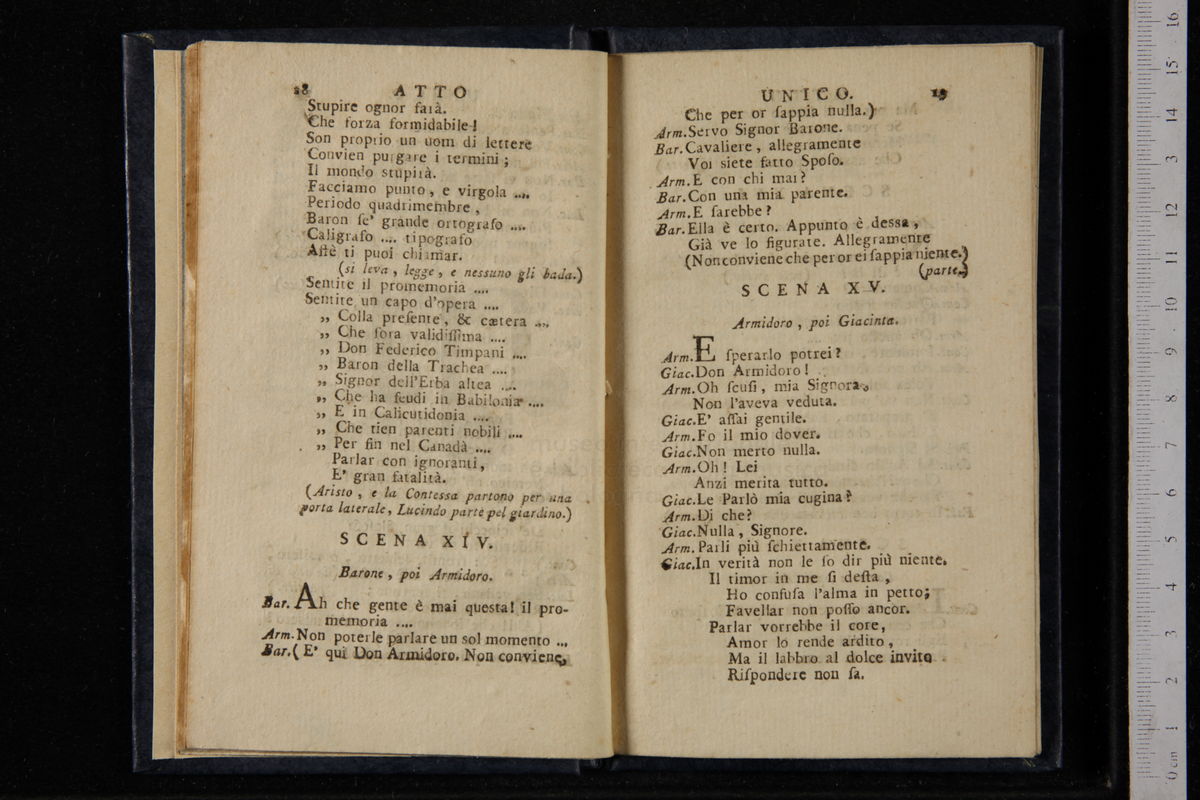 28 ATTO
Stupire ognor farà.
Che forza formidabile!
Son proprio un uom di lettere
Convien purgare i termini;
Il mondo stupirà.
Facciamo punto, e virgola ....
Periodo quadrimembre,
Baron se' grande ortografo ....
Caligrafo .... tipografo
Affè ti puoi chiamar.
(si leva, legge, e nessuno gli bada.)
Sentite il promemoria ....
Sentite un capo d'opera ....
,, Colla presente, & cætera ....
,, Che fora validissima ....
,, Don Federico Timpani ....
,, Baron della Trachea ....
,, Signor dell'Erba altea ....
,, Che ha feudi in Babilonia ....
,, E in Calicutidonia ....
,, Che tien parenti nobili ....
,, Per fin nel Canadà ....
Parlar con ignoranti,
E' gran fatalità.
(Aristo, e la Contessa partono per una
porta laterale, Lucindo parte pel giardino.)
SCENA XIV.
Barone, poi Armidoro.
Bar. Ah che gente è mai questa! il pro-
memoria ....
Arm. Non poterle parlare un sol momento ...
Bar. ( E' qui Don Armidoro. Non conviene,
UNICO. 19
Che per or sappia nulla.)
Arm. Servo Signor Barone.
Bar. Cavaliere, allegramente
Voi siete fatto Sposo.
Arm. E con chi mai?
Bar. Con una mia parente.
Arm. E sarebbe?
Bar. Ella è certo. Appunto è dessa,
Già ve lo figurate. Allegramente
(Non conviene che per or ei sappia niente.)
(parte.)
SCENA XV.
Armidoro, poi Giacinta.
Arm. E sperarlo potrei?
Giac. Don Armidoro!
Arm. Oh scusi, mia Signora,
Non l'aveva veduta.
Giac. E' assai gentile.
Arm. Fo il mio dover.
Giac. Non merto nulla.
Arm. Oh! Lei
Anzi merita tutto.
Giac. Le Parlò mia cugina?
Arm. Di che?
Giac. Nulla, Signore.
Arm. Parli più schiettamente.
Giac. In verità non le so dir più niente.
Il timor in me si desta,
Ho confusa l'alma in petto;
Favellar non posso ancor.
Parlar vorrebbe il core,
Amor lo rende ardito,
Ma il labbro al dolce invito
Rispondere non sa.
0 cm 1 2 3 4 5 6 7 8 9 10 11 12 13 14 15 16